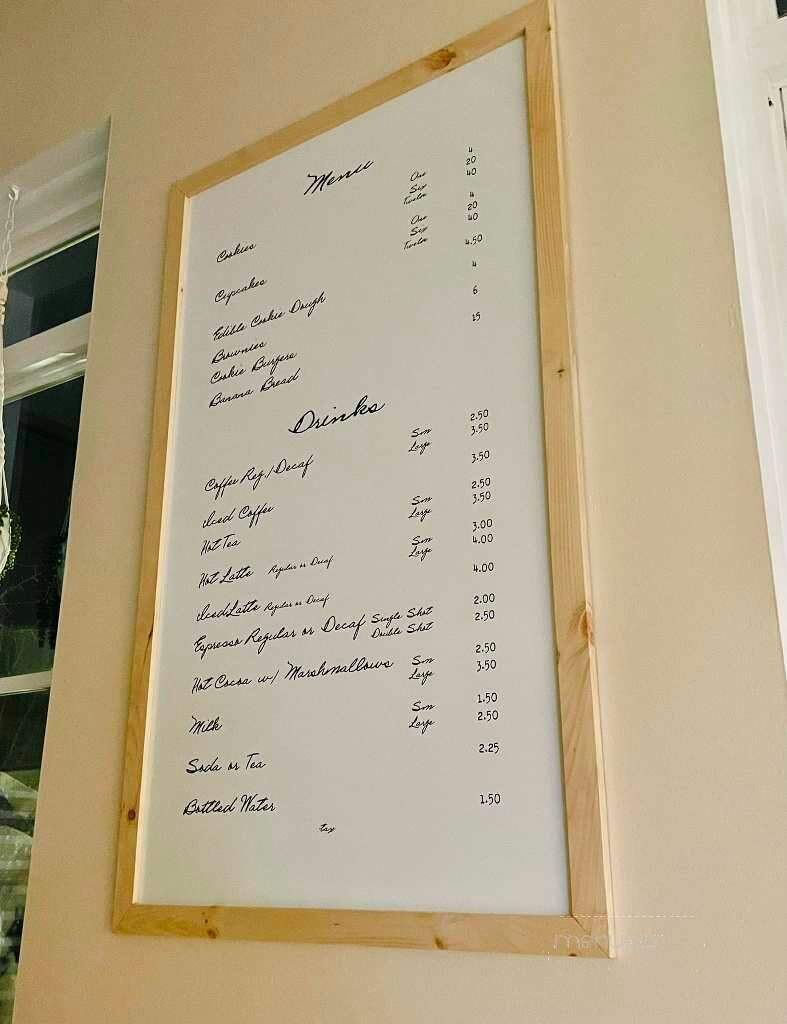 Menu
Cookies One 4
Six 20
Twelve 40
Cupcakes One 4
Six 20
Twelve 40
Edible Cookie Dough 4.50
Brownies 4
Cookie Burgers 6
Banana Bread 15
Drinks
Coffee Reg./Decaf Sm 2.50
Large 3.50
Iced Coffee 3.50
Hot Tea Sm 2.50
Large 3.50
Hot Latte Regular or Decaf Sm 3.00
Large 4.00
Iced Latte Regular or Decaf 4.00
Espresso Regular or Decaf Single Shot 2.00
Double Shot 2.50
Hot Cocoa w/ Marshmallows Sm 2.50
Large 3.50
Milk Sm 1.50
Large 2.50
Soda or Tea 2.25
Bottled Water 1.50
tax